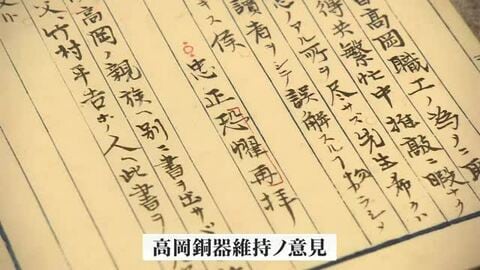 高岡職工ノ為メニ
得共繁忙中推敲ニ暇
ノアル所ヲ尽サズ先生希クハ
讀者ヲシテ誤解
キス候
忠正恐懼再拝
高岡ノ親族ヘ別ニ書ヲ出サズ
父、竹村平吉ホノ人ヘ此書ヲ
高岡銅器維持ノ意見